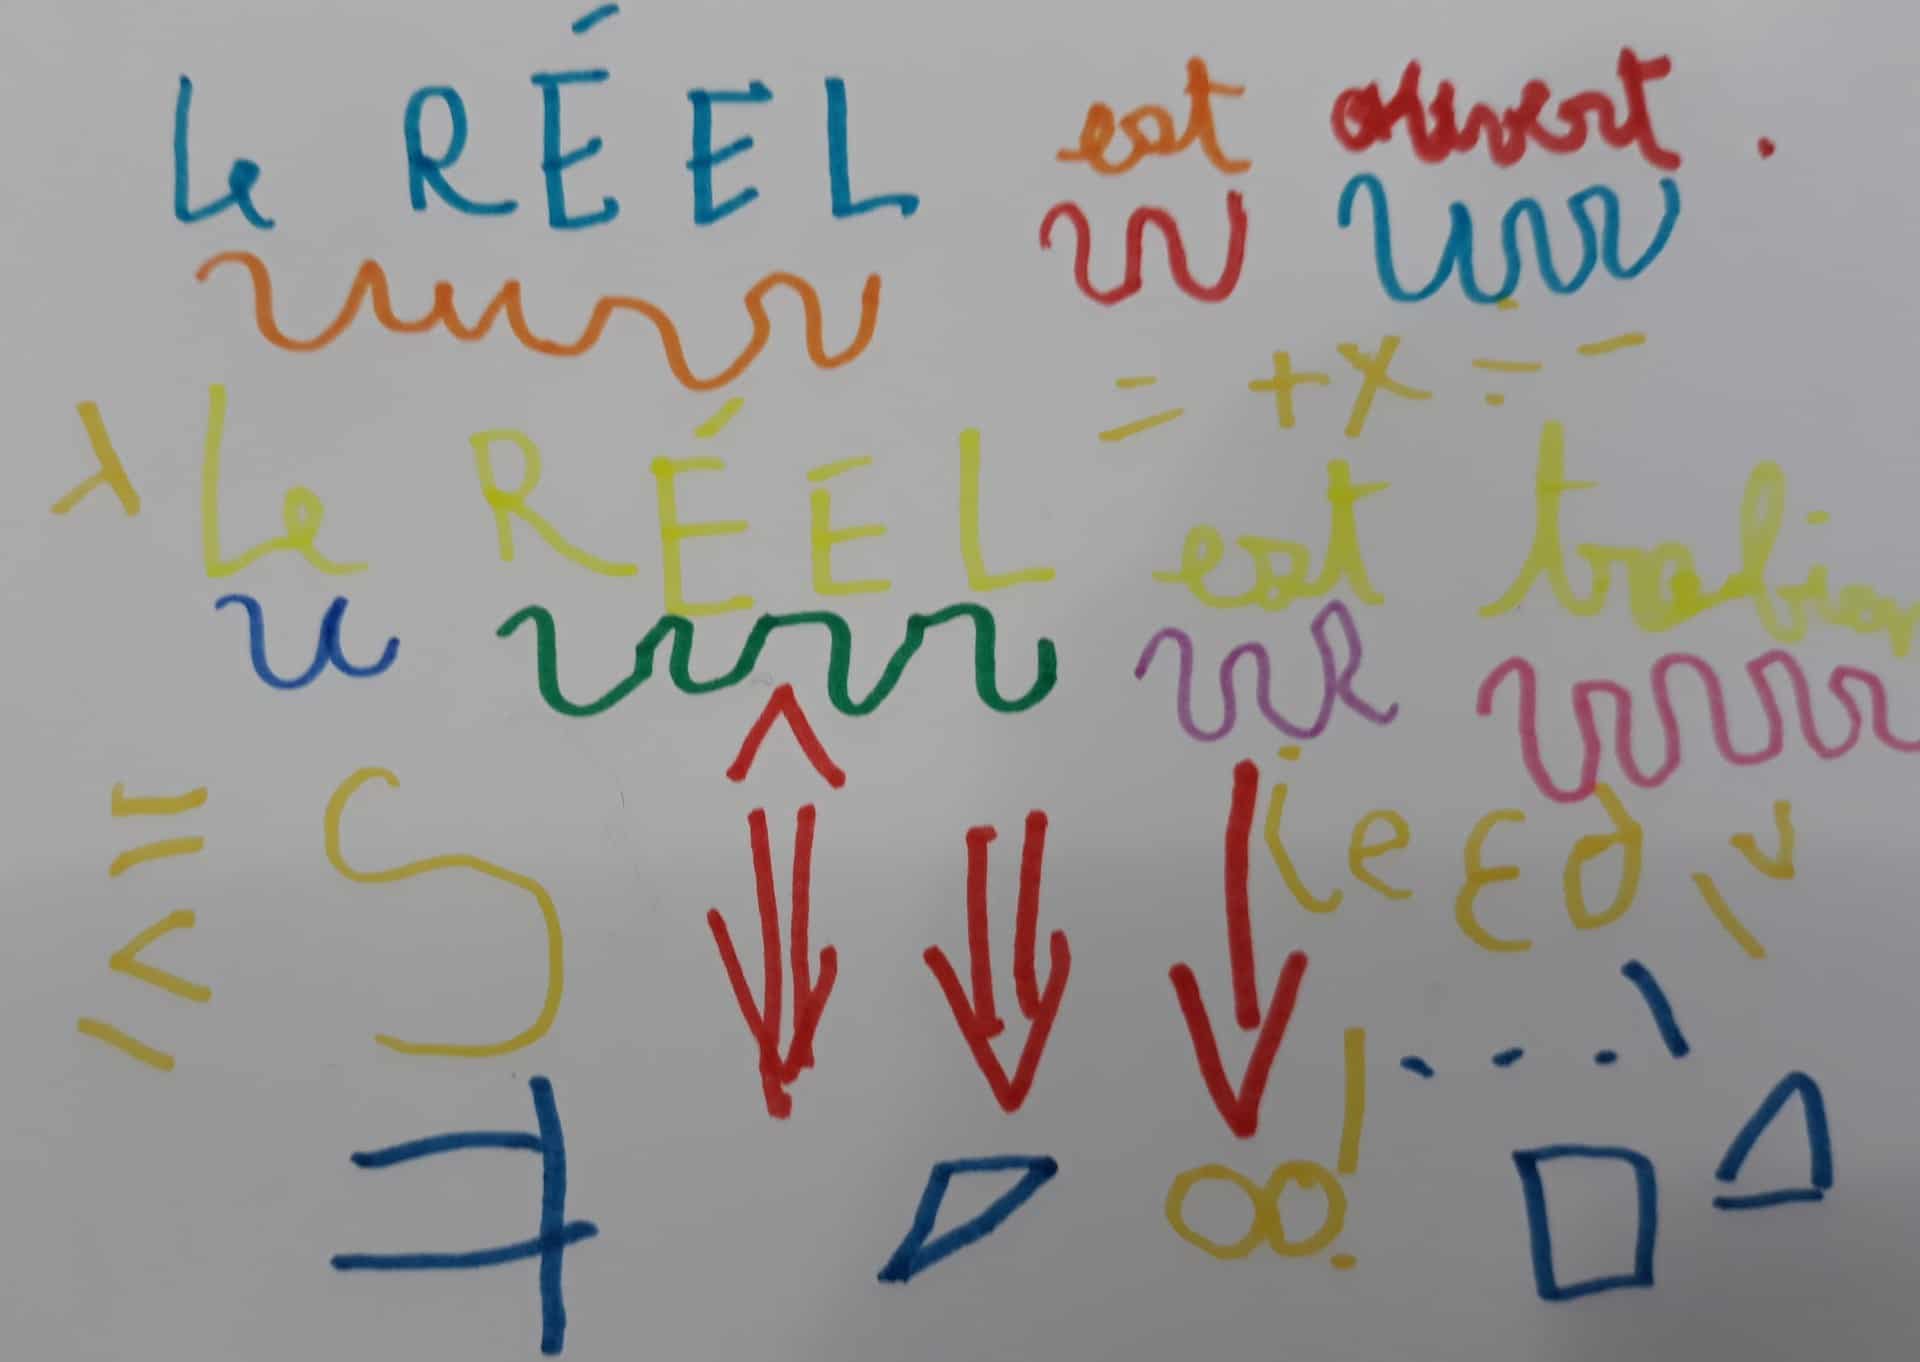 Le RÉEL est ouvert.
= + × ÷ −
λ Le RÉEL est
i e ε ∂
∞ !